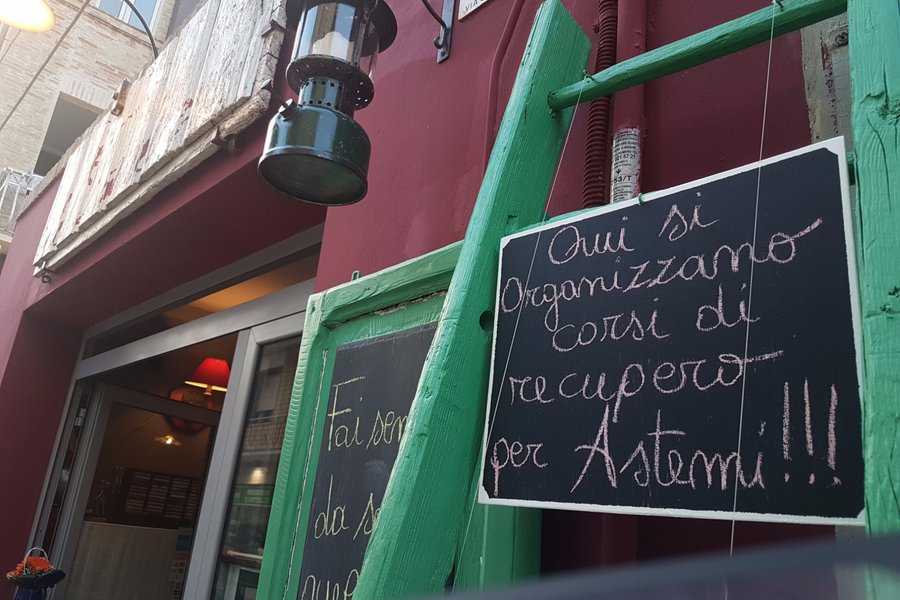 Qui si
Organizzano
corsi di
recupero
per Astemi!!!
Fai sem
da s